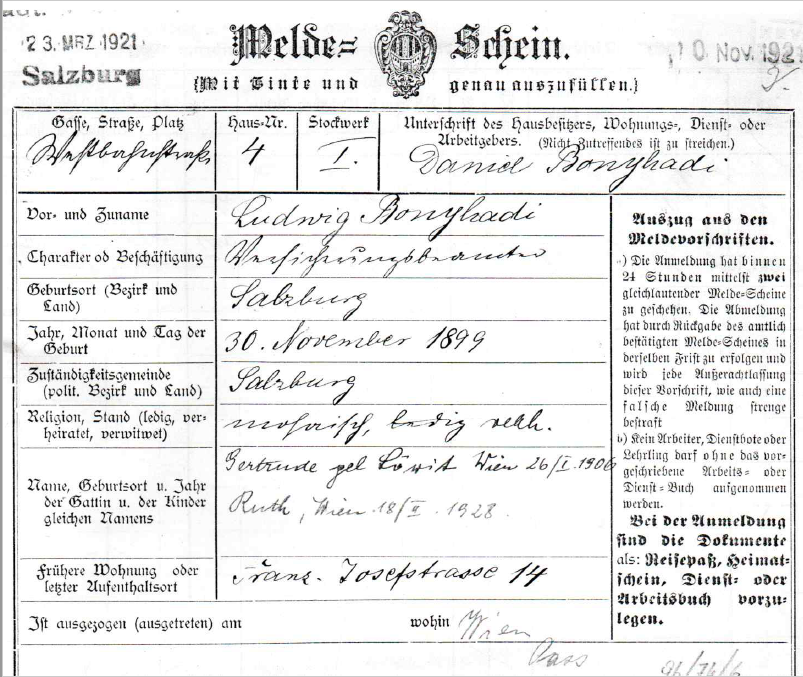 23. MRZ 1921
Salzburg
Melde= Schein.
10. Nov. 1921
(Mit Tinte und genau auszufüllen.)
Gasse, Straße, Platz
Westbahnstraße
Haus=Nr.
4
Stockwerk
I.
Unterschrift des Hausbesitzers, Wohnungs=, Dienst= oder
Arbeitgebers. (Nicht Zutreffendes ist zu streichen.)
Daniel Bonyhadi
Vor= und Zuname
Ludwig Bonyhadi
Charakter od Beschäftigung
Versicherungsbeamter
Geburtsort (Bezirk und
Land)
Salzburg
Jahr, Monat und Tag der
Geburt
30. November 1899
Zuständigkeitsgemeinde
(polit. Bezirk und Land)
Salzburg
Religion, Stand (ledig, ver=
heiratet, verwitwet)
mosaisch, ledig verh.
Name, Geburtsort u. Jahr
der Gattin u. der Kinder
gleichen Namens
Gertrude geb Löwit Wien 26/I. 1906
Ruth, Wien 18/II. 1928.
Frühere Wohnung oder
letzter Aufenthaltsort
Franz-Josefstrasse 14
Ist ausgezogen (ausgetreten) am
wohin
Wien
Pass
Auszug aus den
Meldevorschriften.
a) Die Anmeldung hat binnen
24 Stunden mittelst zwei
gleichlautender Melde=Scheine
zu geschehen. Die Abmeldung
hat durch Rückgabe des amtlich
bestätigten Melde=Scheines in
derselben Frist zu erfolgen und
wird jede Außerachtlassung
dieser Vorschrift, wie auch eine
falsche Meldung strenge
bestraft
b) Kein Arbeiter, Dienstbote oder
Lehrling darf ohne das vor=
geschriebene Arbeits= oder
Dienst=Buch aufgenommen
werden.
Bei der Anmeldung
sind die Dokumente
als: Reisepaß, Heimat=
schein, Dienst= oder
Arbeitsbuch vorzu=
legen.